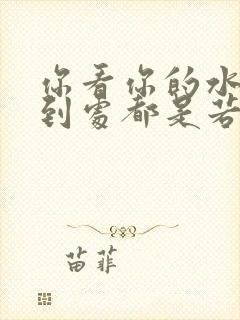 你看你的水
到處都是若
苗菲